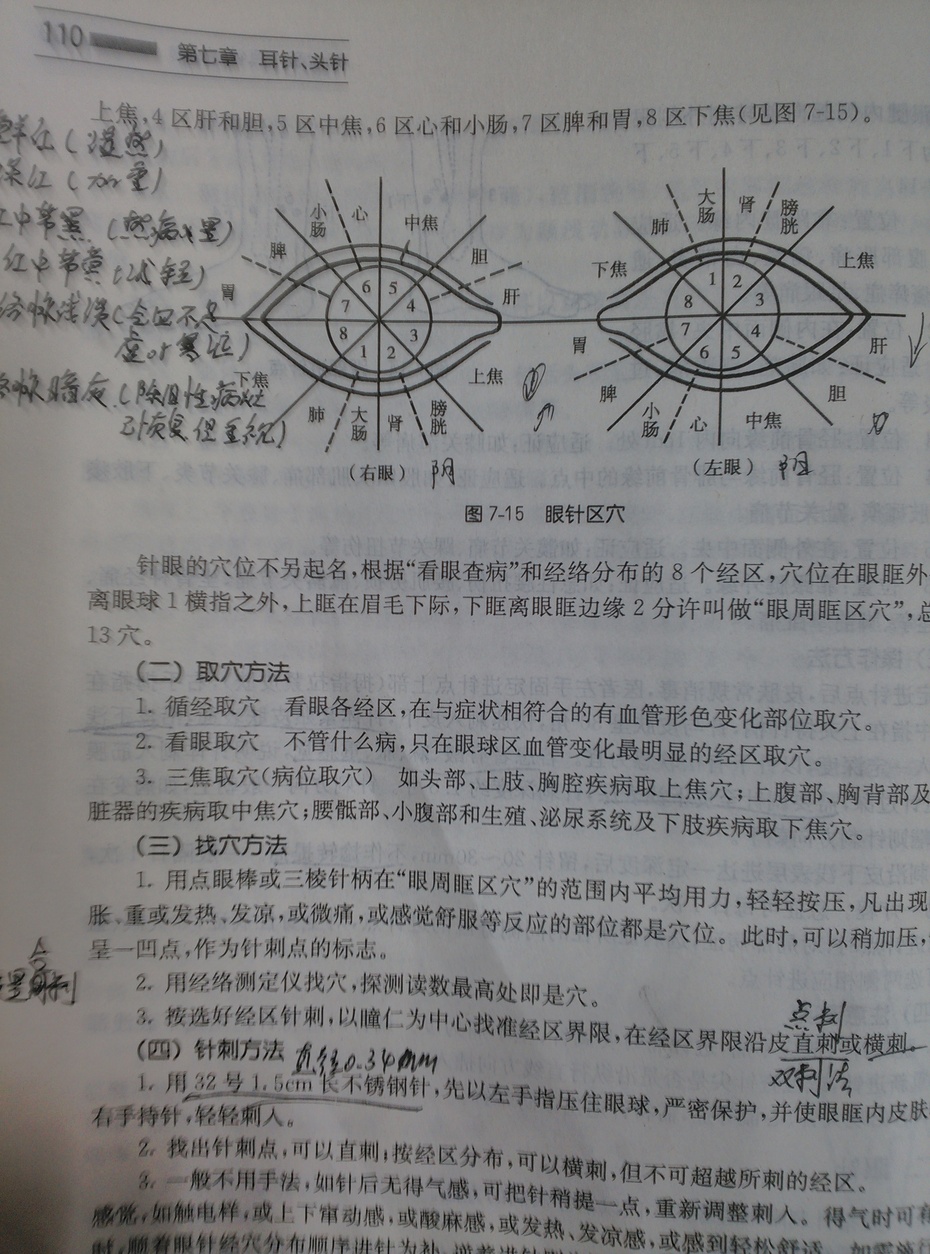 110
第七章 耳针、头针
上焦,4区肝和胆,5区中焦,6区心和小肠,7区脾和胃,8区下焦(见图7-15)。
胃
脾
小肠
心
中焦
胆
肝
6 5
7 4
8 3
1 2
下焦
肺
大肠
肾
膀胱
上焦
(右眼) 阴
下焦
肺
大肠
肾
膀胱
上焦
1 2
8 3
7 4
6 5
胃
脾
小肠
心
中焦
胆
肝
(左眼) 阳
图7-15 眼针区穴
针眼的穴位不另起名,根据“看眼查病”和经络分布的8个经区,穴位在眼眶外
离眼球1横指之外,上眶在眉毛下际,下眶离眼眶边缘2分许叫做“眼周眶区穴”,总
13穴。
(二)取穴方法
1. 循经取穴 看眼各经区,在与症状相符合的有血管形色变化部位取穴。
2. 看眼取穴 不管什么病,只在眼球区血管变化最明显的经区取穴。
3. 三焦取穴(病位取穴) 如头部、上肢、胸腔疾病取上焦穴;上腹部、胸背部及
脏器的疾病取中焦穴;腰骶部、小腹部和生殖、泌尿系统及下肢疾病取下焦穴。
(三)找穴方法
1. 用点眼棒或三棱针柄在“眼周眶区穴”的范围内平均用力,轻轻按压,凡出现
胀、重或发热、发凉,或微痛,或感觉舒服等反应的部位都是穴位。此时,可以稍加压,
呈一凹点,作为针刺点的标志。
2. 用经络测定仪找穴,探测读数最高处即是穴。
3. 按选好经区针刺,以瞳仁为中心找准经区界限,在经区界限沿皮直刺或横刺。
点刺
双刺法
(四)针刺方法 直径0.34mm
1. 用32号1.5cm长不锈钢针,先以左手指压住眼球,严密保护,并使眼眶内皮肤
右手持针,轻轻刺入。
2. 找出针刺点,可以直刺;按经区分布,可以横刺,但不可超越所刺的经区。
3. 一般不用手法,如针后无得气感,可把针稍提一点,重新调整刺入。得气时可有
感觉,如触电样,或上下窜动感,或酸麻感,或发热、发凉感,或感到轻松舒适。
时,顺着眼针经穴分布顺序进针为补